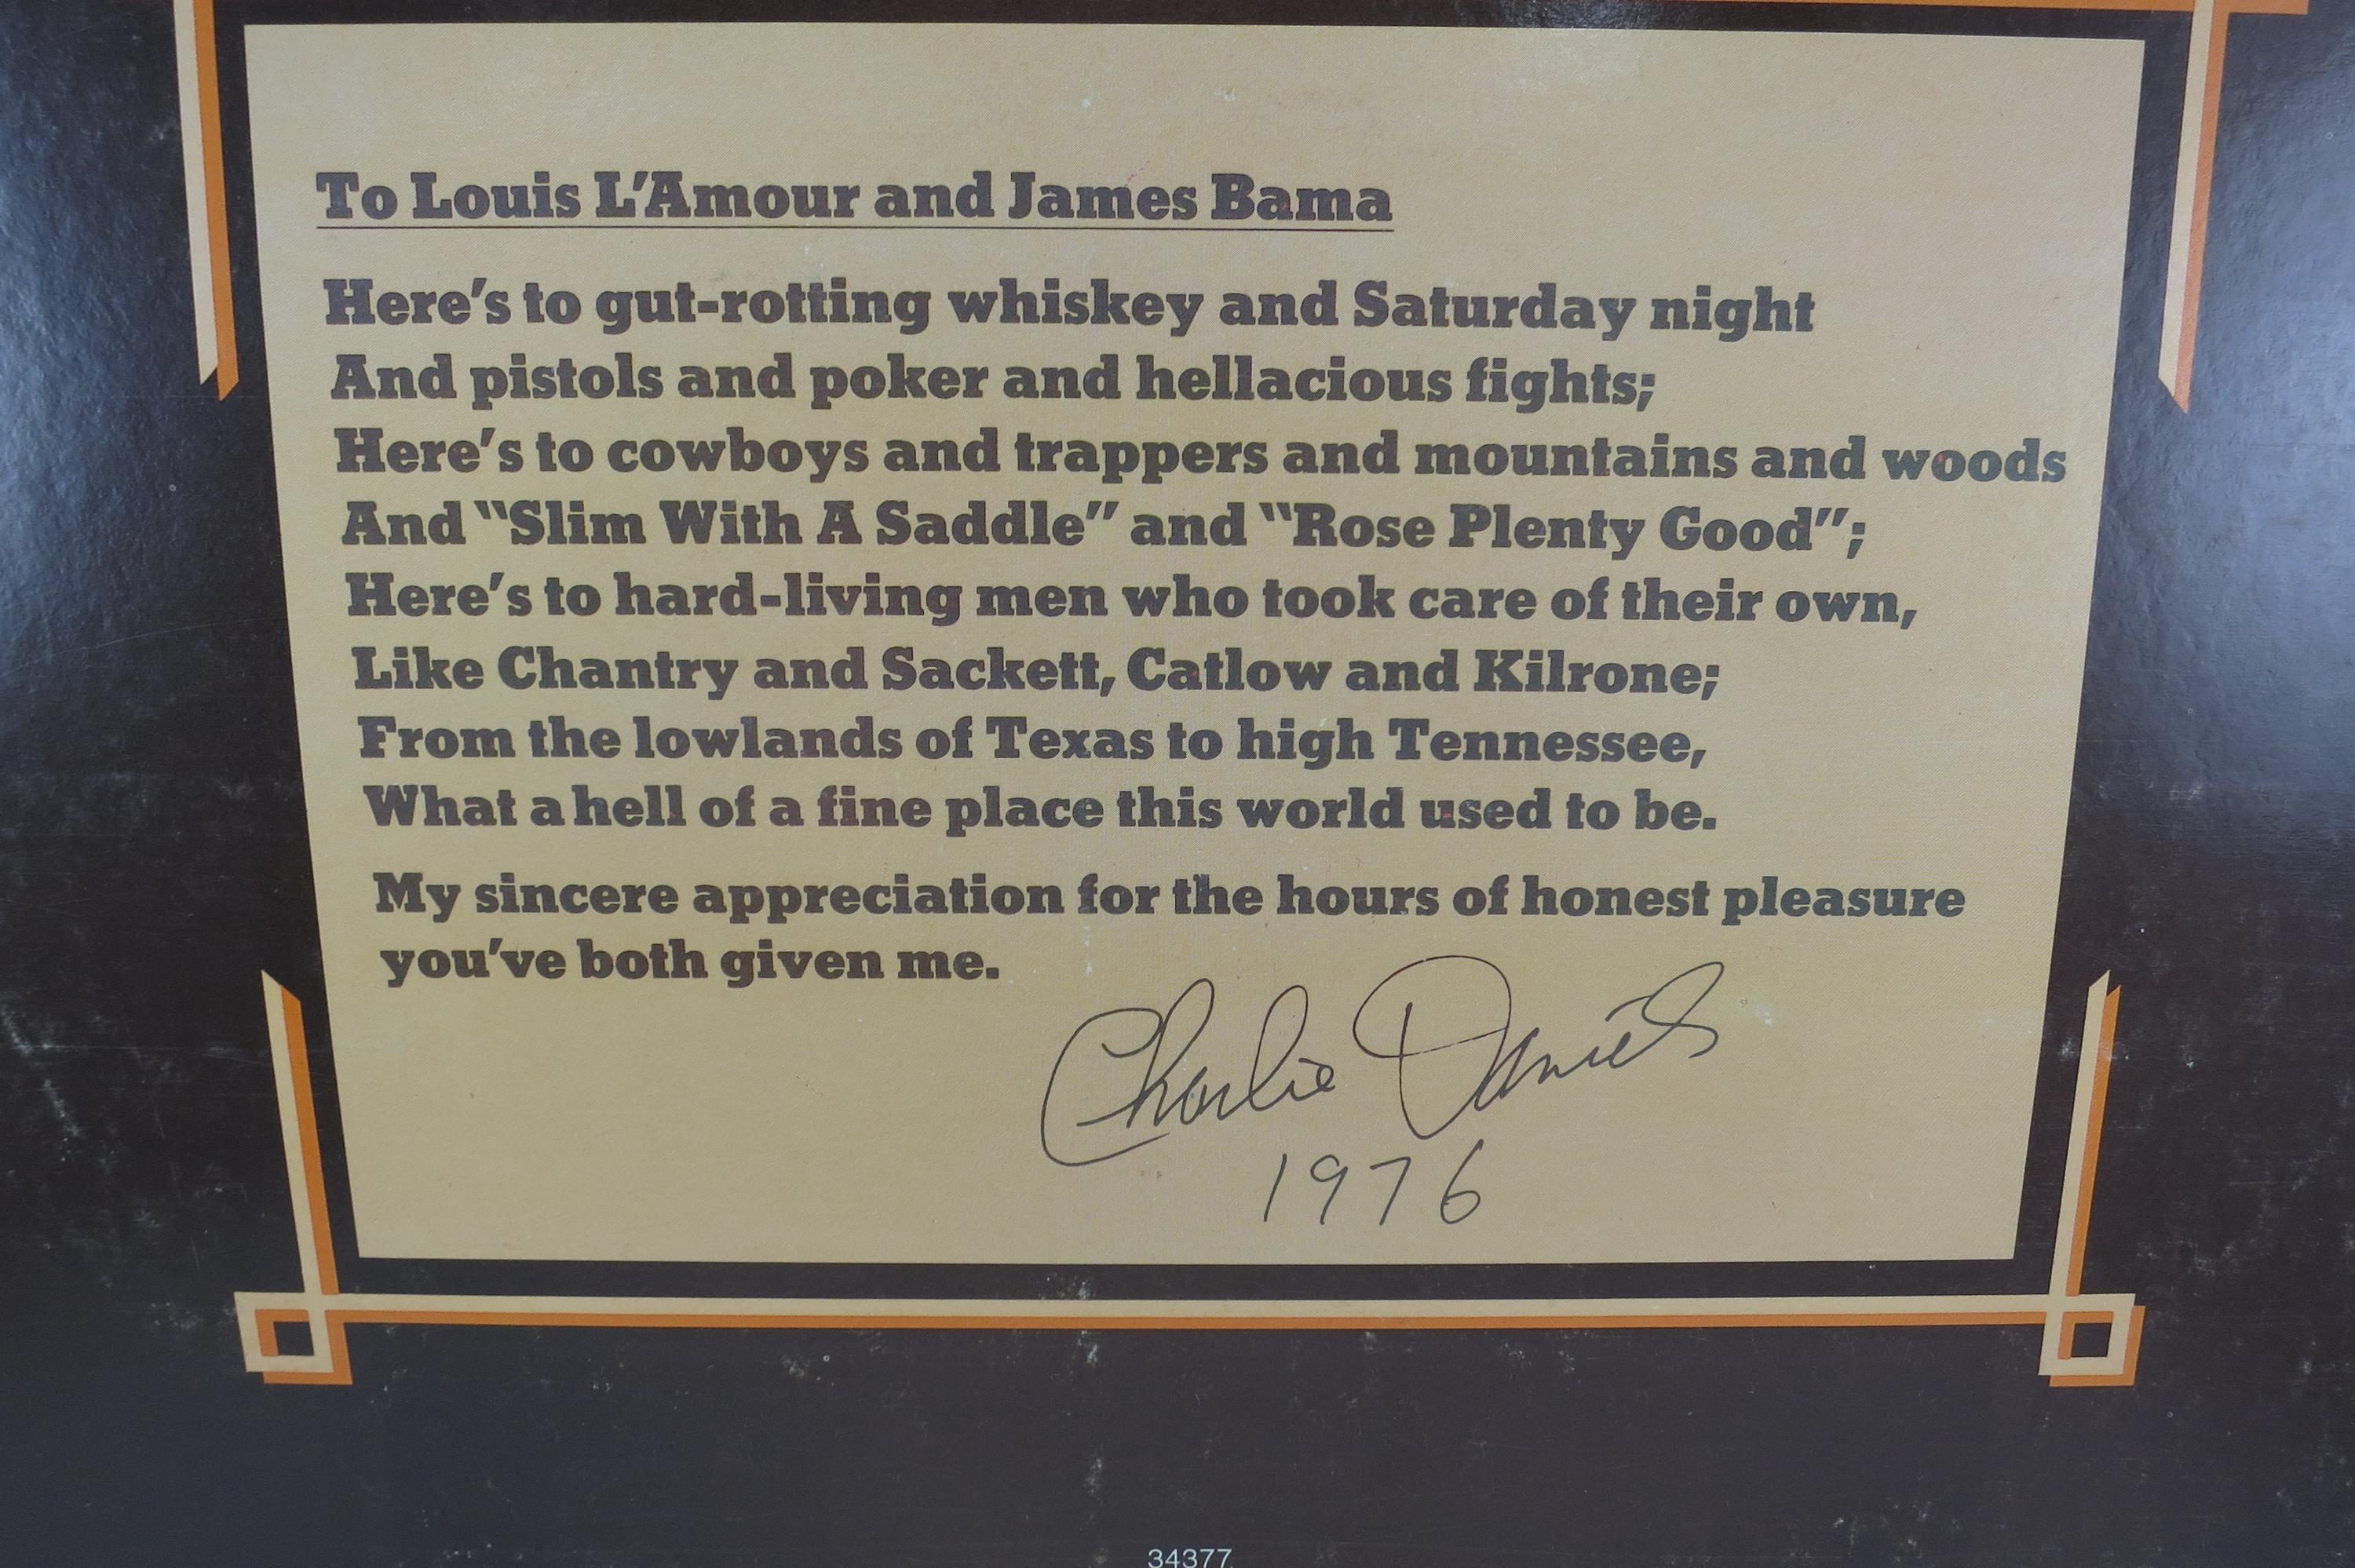 To Louis L'Amour and James Bama
Here's to gut-rotting whiskey and Saturday night
And pistols and poker and hellacious fights;
Here's to cowboys and trappers and mountains and woods
And "Slim With A Saddle" and "Rose Plenty Good";
Here's to hard-living men who took care of their own,
Like Chantry and Sackett, Catlow and Kilrone;
From the lowlands of Texas to high Tennessee,
What a hell of a fine place this world used to be.
My sincere appreciation for the hours of honest pleasure
you've both given me.
Charlie Daniels
1976
34377